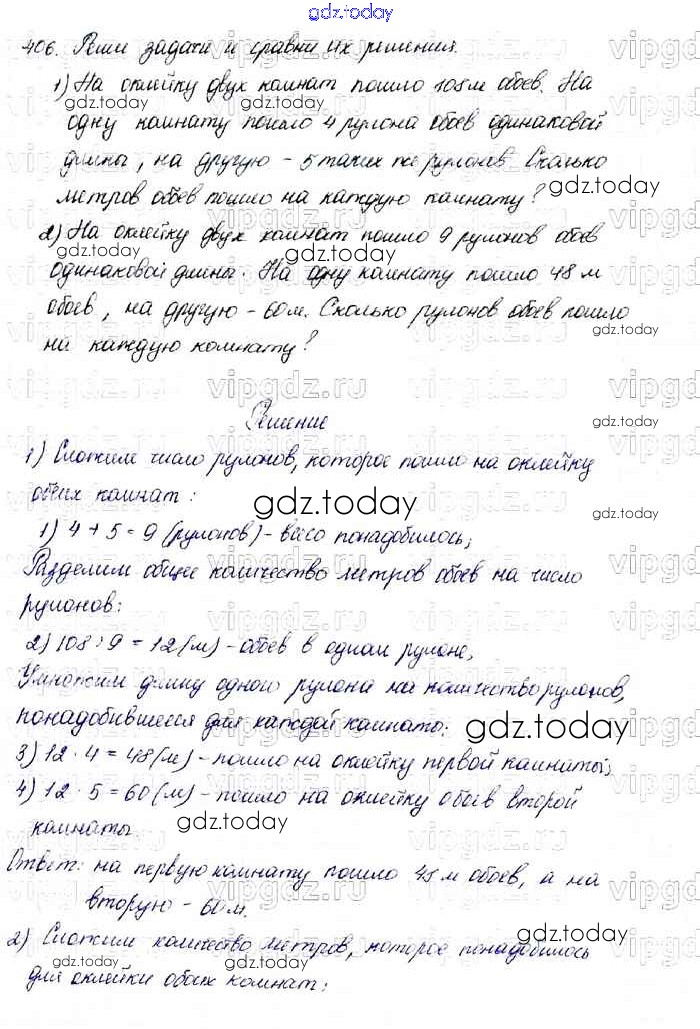 gdz.today
406. Реши задачи и сравни их решения.
1) На оклейку двух комнат пошло 108 м обоев. На
одну комнату пошло 4 рулона обоев одинаковой
длины, на другую - 5 таких же рулонов. Сколько
метров обоев пошло на каждую комнату?
2) На оклейку двух комнат пошло 9 рулонов обоев
одинаковой длина. На одну комнату пошло 48 м
обоев, на другую - 60м. Сколько рулонов обоев пошло
на каждую комнату?
Решение
1) Сложим число рулонов, которое пошло на оклейку
обеих комнат:
gdz.today
1) 4 + 5 = 9 (рулонов) - всего понадобилось;
Разделим общее количество метров обоев на число
рулонов:
2) 108 : 9 = 12 (м) - обоев в одном рулоне;
Умножим длину одного рулона на количество рулонов,
понадобившееся для каждой комнаты:
gdz.today
3) 12 · 4 = 48 (м) - пошло на оклейку первой комнаты;
4) 12 · 5 = 60 (м) - пошло на оклейку обоев второй
комнаты
gdz.today
Ответ: на первую комнату пошло 48 м обоев, а на
вторую - 60 м.
gdz.today
2) Сложим количество метров, которое понадобилось
для оклейки обоих комнат:
gdz.today